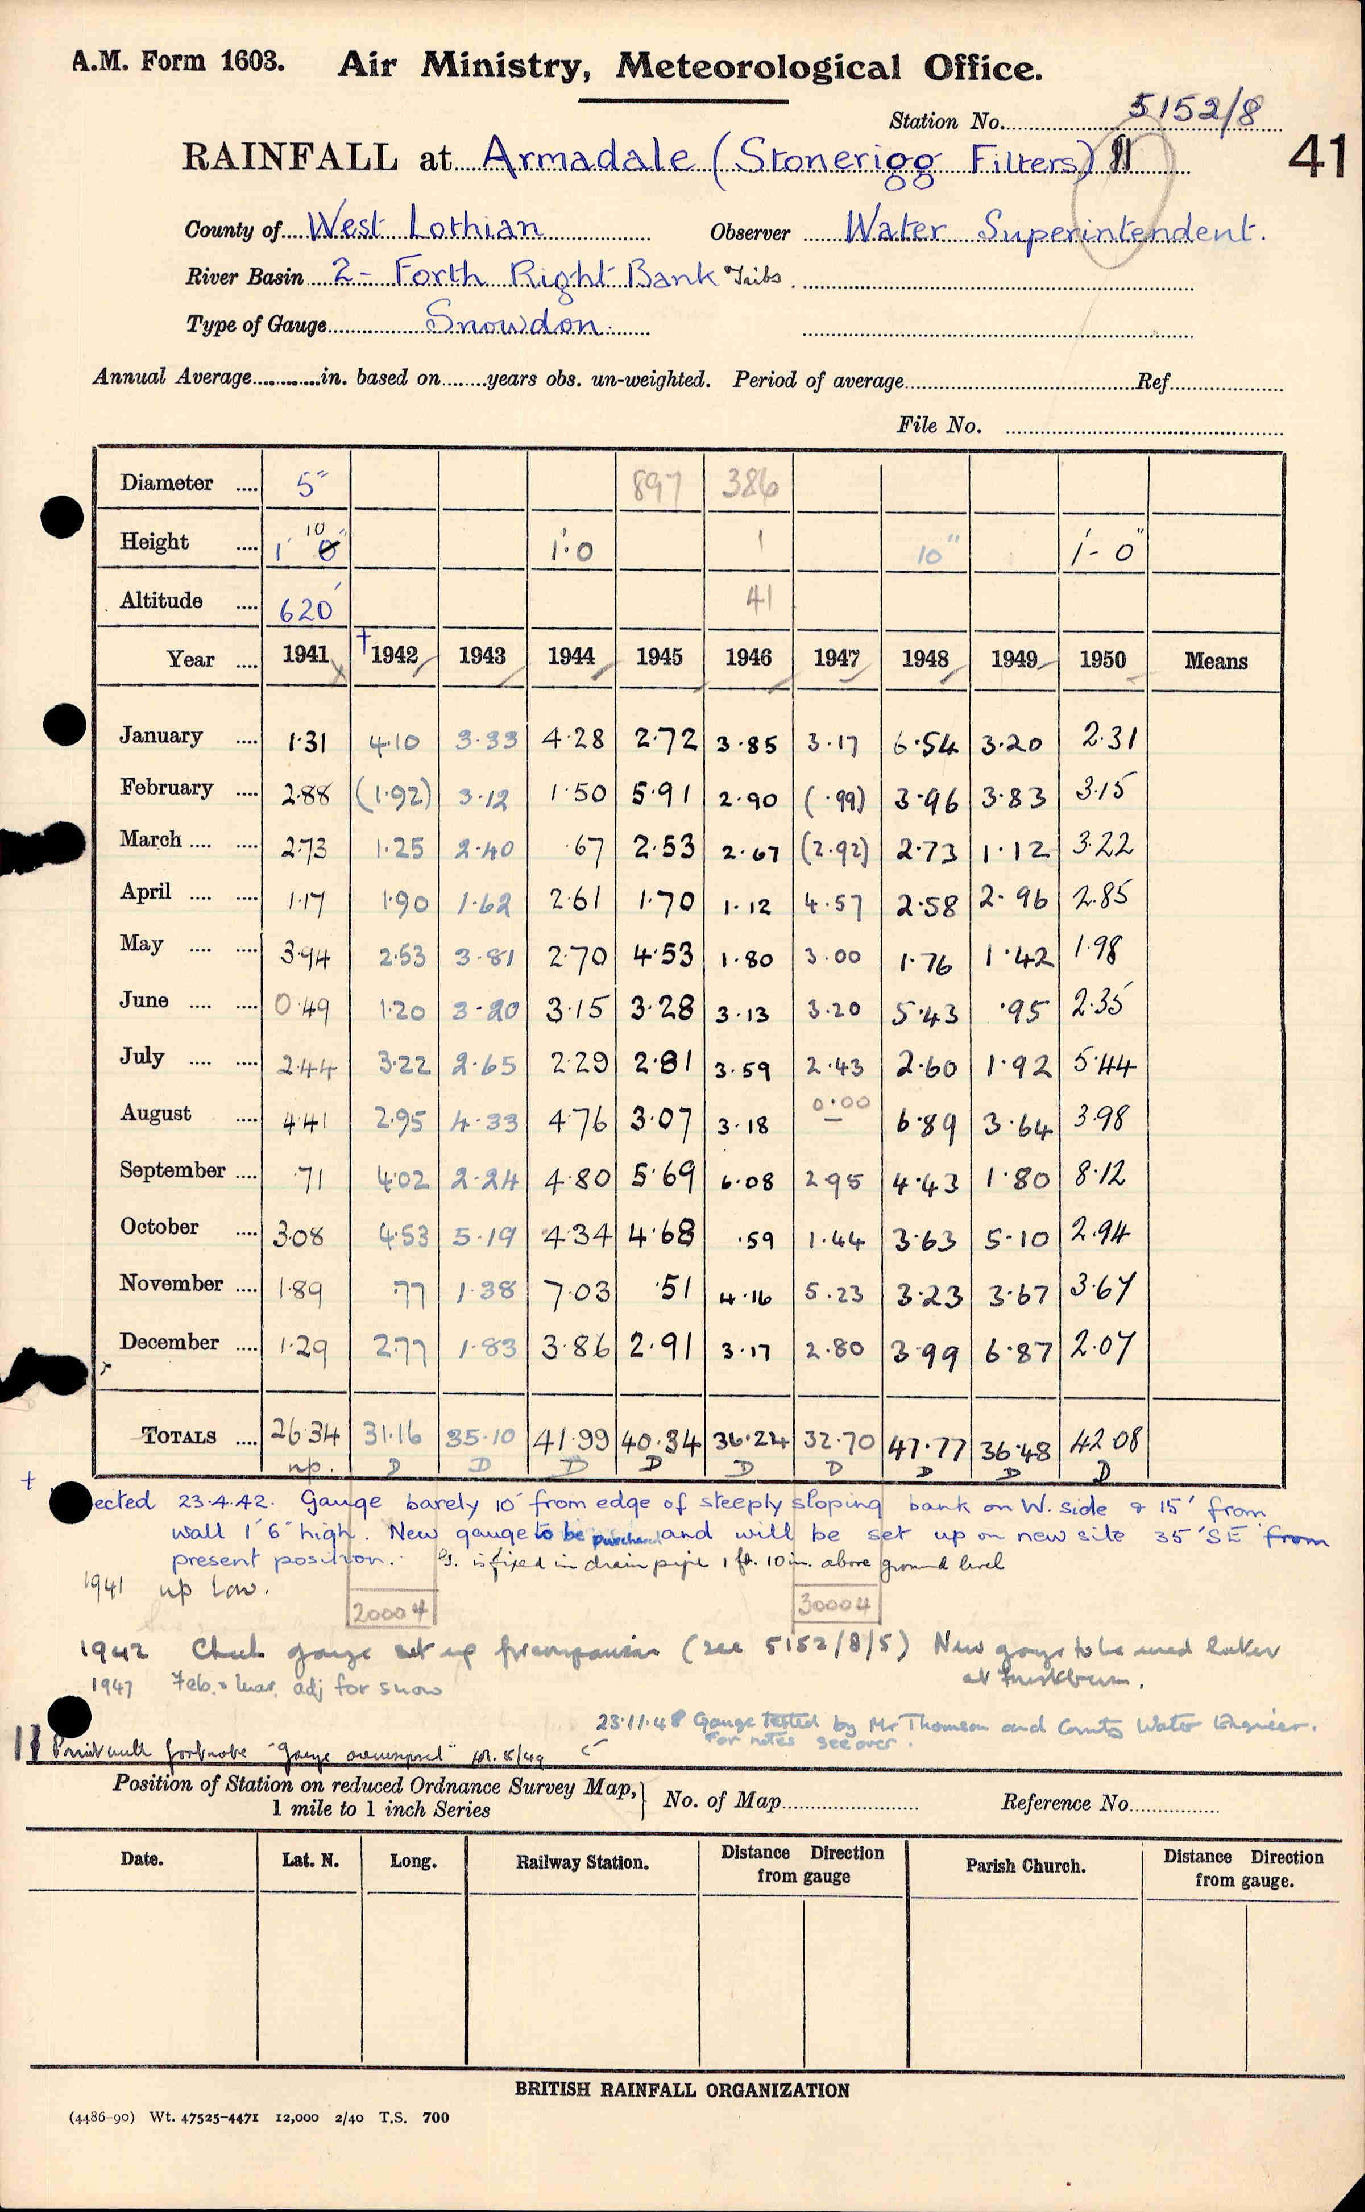 A.M. Form 1603. Air Ministry, Meteorological Office.
Station No. 5152/8
RAINFALL at Armadale (Stonerigg Filters)
41
County of West Lothian Observer Water Superintendent.
River Basin 2 - Forth Right Bank Tribs.
Type of Gauge Snowdon.
Annual Average............in. based on........years obs. un-weighted. Period of average........Ref........
File No. ........
Diameter .... 5" 897 386
Height .... 1' 10" 1'·0 1 10" 1'- 0"
Altitude .... 620' 41
Year .... 1941 †1942 1943 1944 1945 1946 1947 1948 1949 1950 Means
January .... 1·31 4·10 3·33 4·28 2·72 3·85 3·17 6·54 3·20 2·31
February .... 2·88 (1·92) 3·12 1·50 5·91 2·90 (·99) 3·96 3·83 3·15
March .... .... 2·73 1·25 2·40 ·67 2·53 2·67 (2·92) 2·73 1·12 3·22
April .... .... 1·17 1·90 1·62 2·61 1·70 1·12 4·57 2·58 2·96 2·85
May .... .... 3·94 2·53 3·81 2·70 4·53 1·80 3·00 1·76 1·42 1·98
June .... .... 0·49 1·20 3·20 3·15 3·28 3·13 3·20 5·43 ·95 2·35
July .... .... 2·44 3·22 2·65 2·29 2·81 3·59 2·43 2·60 1·92 5·44
August .... 4·41 2·95 4·33 4·76 3·07 3·18 0·00 — 6·89 3·64 3·98
September .... ·71 4·02 2·24 4·80 5·69 6·08 2·95 4·43 1·80 8·12
October .... 3·08 4·53 5·19 4·34 4·68 ·59 1·44 3·63 5·10 2·94
November .... 1·89 ·77 1·38 7·03 ·51 4·16 5·23 3·23 3·67 3·67
December .... 1·29 2·77 1·83 3·86 2·91 3·17 2·80 3·99 6·87 2·07
TOTALS .... 26·34 31·16 35·10 41·99 40·34 36·24 32·70 47·77 36·48 42·08
np. D D D D D D D D D
† ected 23.4.42. Gauge barely 10' from edge of steeply sloping bank on W. side & 15' from
wall 1' 6" high. New gauge to be purchased and will be set up on new site 35' SE from
present position. G. is fixed in drain pipe 1 ft. 10 in. above ground level
1941 np Low.
20004 30004
1942 Check gauge set up for comparison (see 5152/8/5) New gauge to be used later
at
1947 Feb. & Mar. adj for snow
23.11.48 Gauge tested by Mr Thomson and County Water Engineer.
For notes see over.
Print with footnote "Gauge overexposed"
Position of Station on reduced Ordnance Survey Map,
1 mile to 1 inch Series } No. of Map........ Reference No........
Date. Lat. N. Long. Railway Station. Distance Direction from gauge Parish Church. Distance Direction from gauge.
BRITISH RAINFALL ORGANIZATION
(4486-90) Wt. 47525-4471 12,000 2/40 T.S. 700